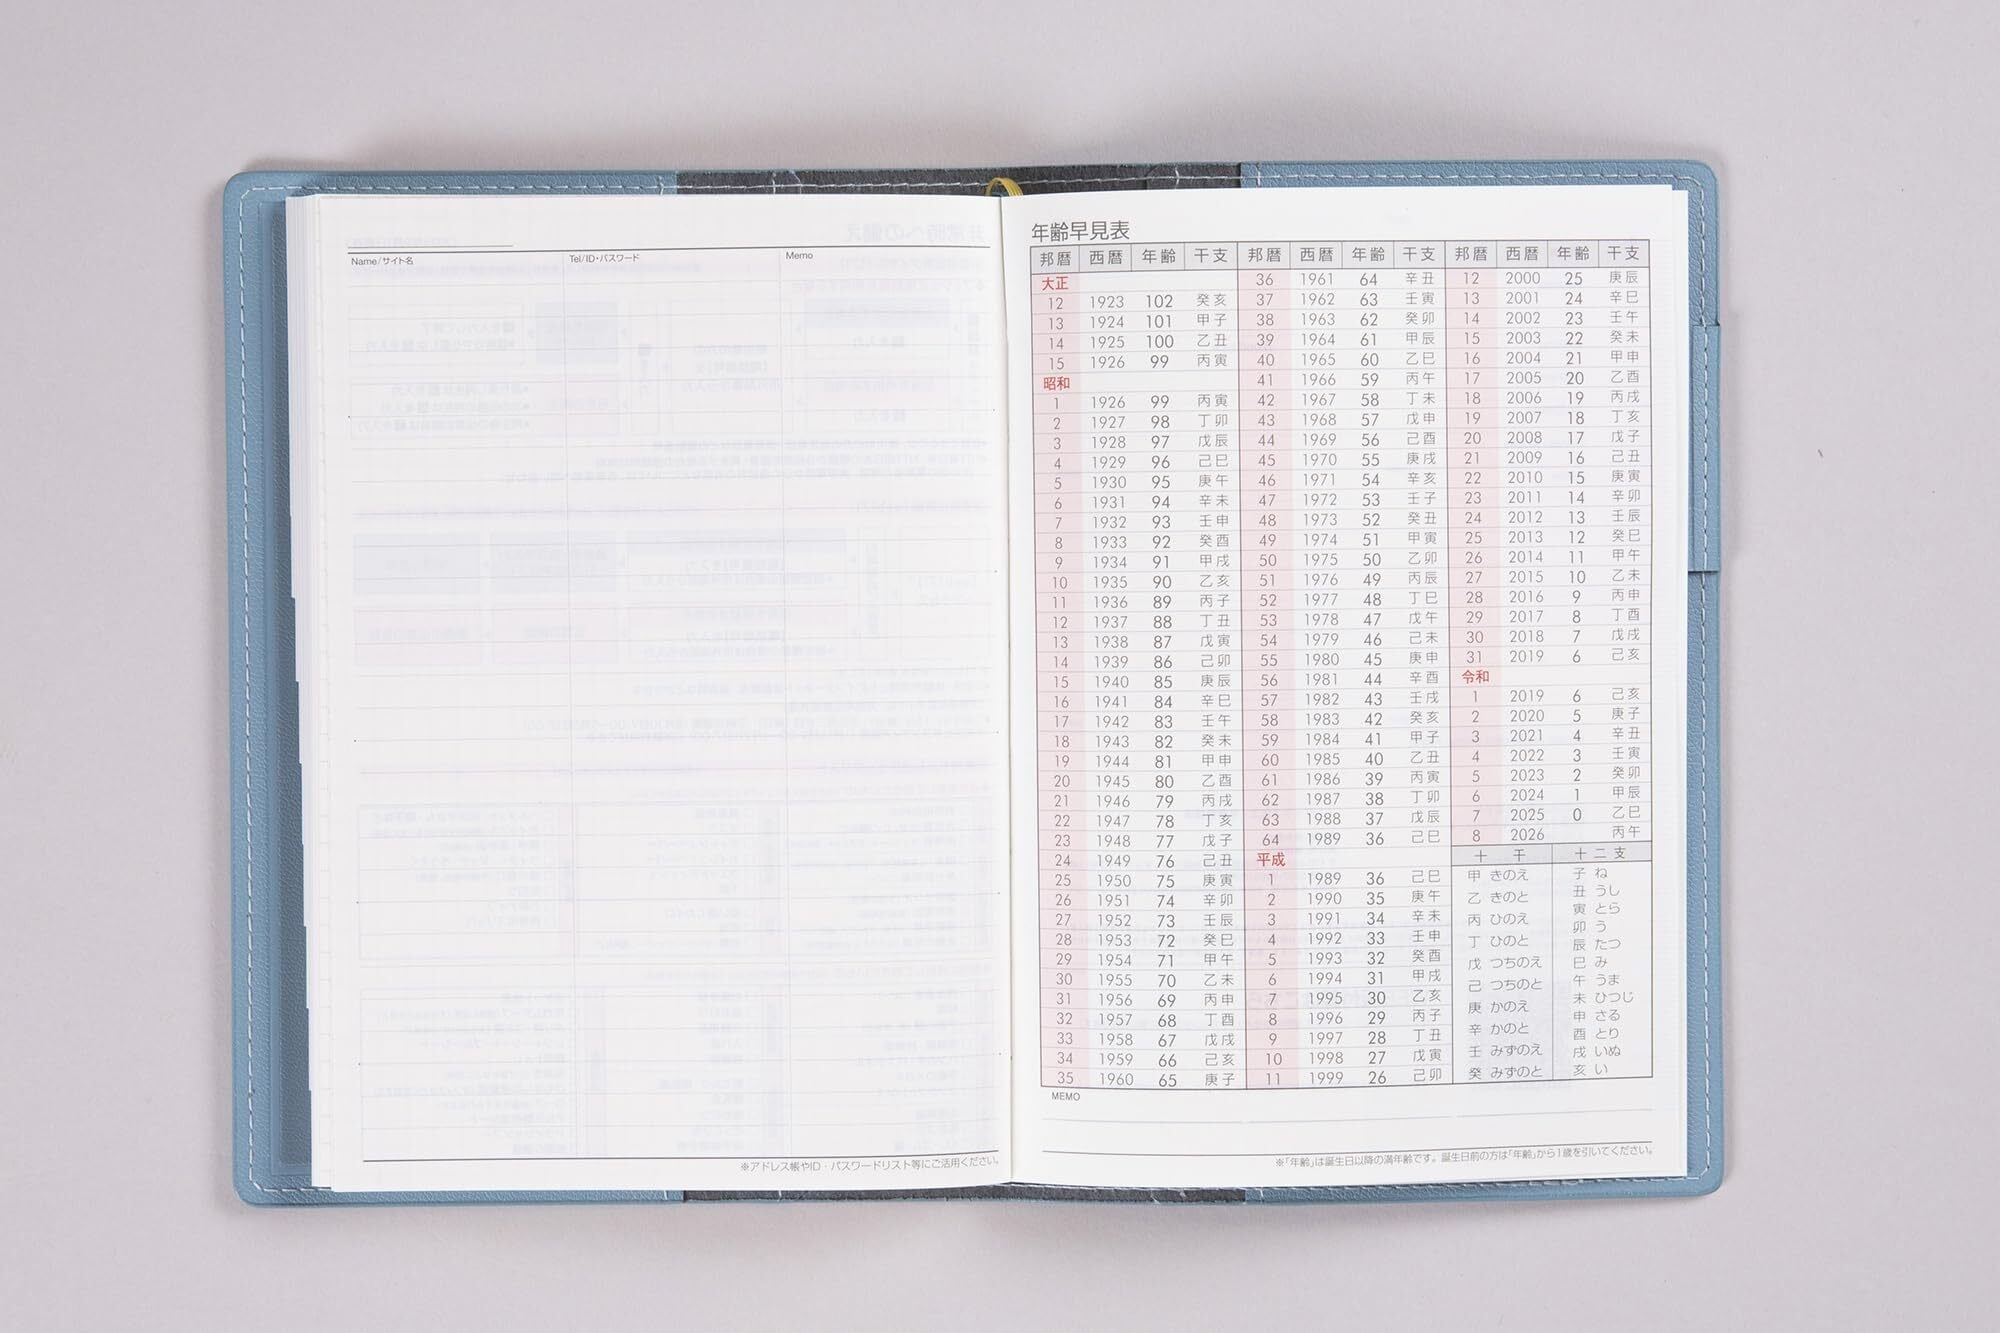 Name/サイト名 Tel/ID・パスワード Memo
※アドレス帳やID・パスワードリスト等にご活用ください。
年齢早見表
邦暦 西暦 年齢 干支 邦暦 西暦 年齢 干支 邦暦 西暦 年齢 干支
大正
12 1923 102 癸亥
13 1924 101 甲子
14 1925 100 乙丑
15 1926 99 丙寅
昭和
1 1926 99 丙寅
2 1927 98 丁卯
3 1928 97 戊辰
4 1929 96 己巳
5 1930 95 庚午
6 1931 94 辛未
7 1932 93 壬申
8 1933 92 癸酉
9 1934 91 甲戌
10 1935 90 乙亥
11 1936 89 丙子
12 1937 88 丁丑
13 1938 87 戊寅
14 1939 86 己卯
15 1940 85 庚辰
16 1941 84 辛巳
17 1942 83 壬午
18 1943 82 癸未
19 1944 81 甲申
20 1945 80 乙酉
21 1946 79 丙戌
22 1947 78 丁亥
23 1948 77 戊子
24 1949 76 己丑
25 1950 75 庚寅
26 1951 74 辛卯
27 1952 73 壬辰
28 1953 72 癸巳
29 1954 71 甲午
30 1955 70 乙未
31 1956 69 丙申
32 1957 68 丁酉
33 1958 67 戊戌
34 1959 66 己亥
35 1960 65 庚子
36 1961 64 辛丑
37 1962 63 壬寅
38 1963 62 癸卯
39 1964 61 甲辰
40 1965 60 乙巳
41 1966 59 丙午
42 1967 58 丁未
43 1968 57 戊申
44 1969 56 己酉
45 1970 55 庚戌
46 1971 54 辛亥
47 1972 53 壬子
48 1973 52 癸丑
49 1974 51 甲寅
50 1975 50 乙卯
51 1976 49 丙辰
52 1977 48 丁巳
53 1978 47 戊午
54 1979 46 己未
55 1980 45 庚申
56 1981 44 辛酉
57 1982 43 壬戌
58 1983 42 癸亥
59 1984 41 甲子
60 1985 40 乙丑
61 1986 39 丙寅
62 1987 38 丁卯
63 1988 37 戊辰
64 1989 36 己巳
平成
1 1989 36 己巳
2 1990 35 庚午
3 1991 34 辛未
4 1992 33 壬申
5 1993 32 癸酉
6 1994 31 甲戌
7 1995 30 乙亥
8 1996 29 丙子
9 1997 28 丁丑
10 1998 27 戊寅
11 1999 26 己卯
12 2000 25 庚辰
13 2001 24 辛巳
14 2002 23 壬午
15 2003 22 癸未
16 2004 21 甲申
17 2005 20 乙酉
18 2006 19 丙戌
19 2007 18 丁亥
20 2008 17 戊子
21 2009 16 己丑
22 2010 15 庚寅
23 2011 14 辛卯
24 2012 13 壬辰
25 2013 12 癸巳
26 2014 11 甲午
27 2015 10 乙未
28 2016 9 丙申
29 2017 8 丁酉
30 2018 7 戊戌
31 2019 6 己亥
令和
1 2019 6 己亥
2 2020 5 庚子
3 2021 4 辛丑
4 2022 3 壬寅
5 2023 2 癸卯
6 2024 1 甲辰
7 2025 0 乙巳
8 2026 丙午
十干
甲 きのえ
乙 きのと
丙 ひのえ
丁 ひのと
戊 つちのえ
己 つちのと
庚 かのえ
辛 かのと
壬 みずのえ
癸 みずのと
十二支
子 ね
丑 うし
寅 とら
卯 う
辰 たつ
巳 み
午 うま
未 ひつじ
申 さる
酉 とり
戌 いぬ
亥 い
MEMO
※「年齢」は誕生日以降の満年齢です。誕生日前の方は「年齢」から1歳を引いてください。